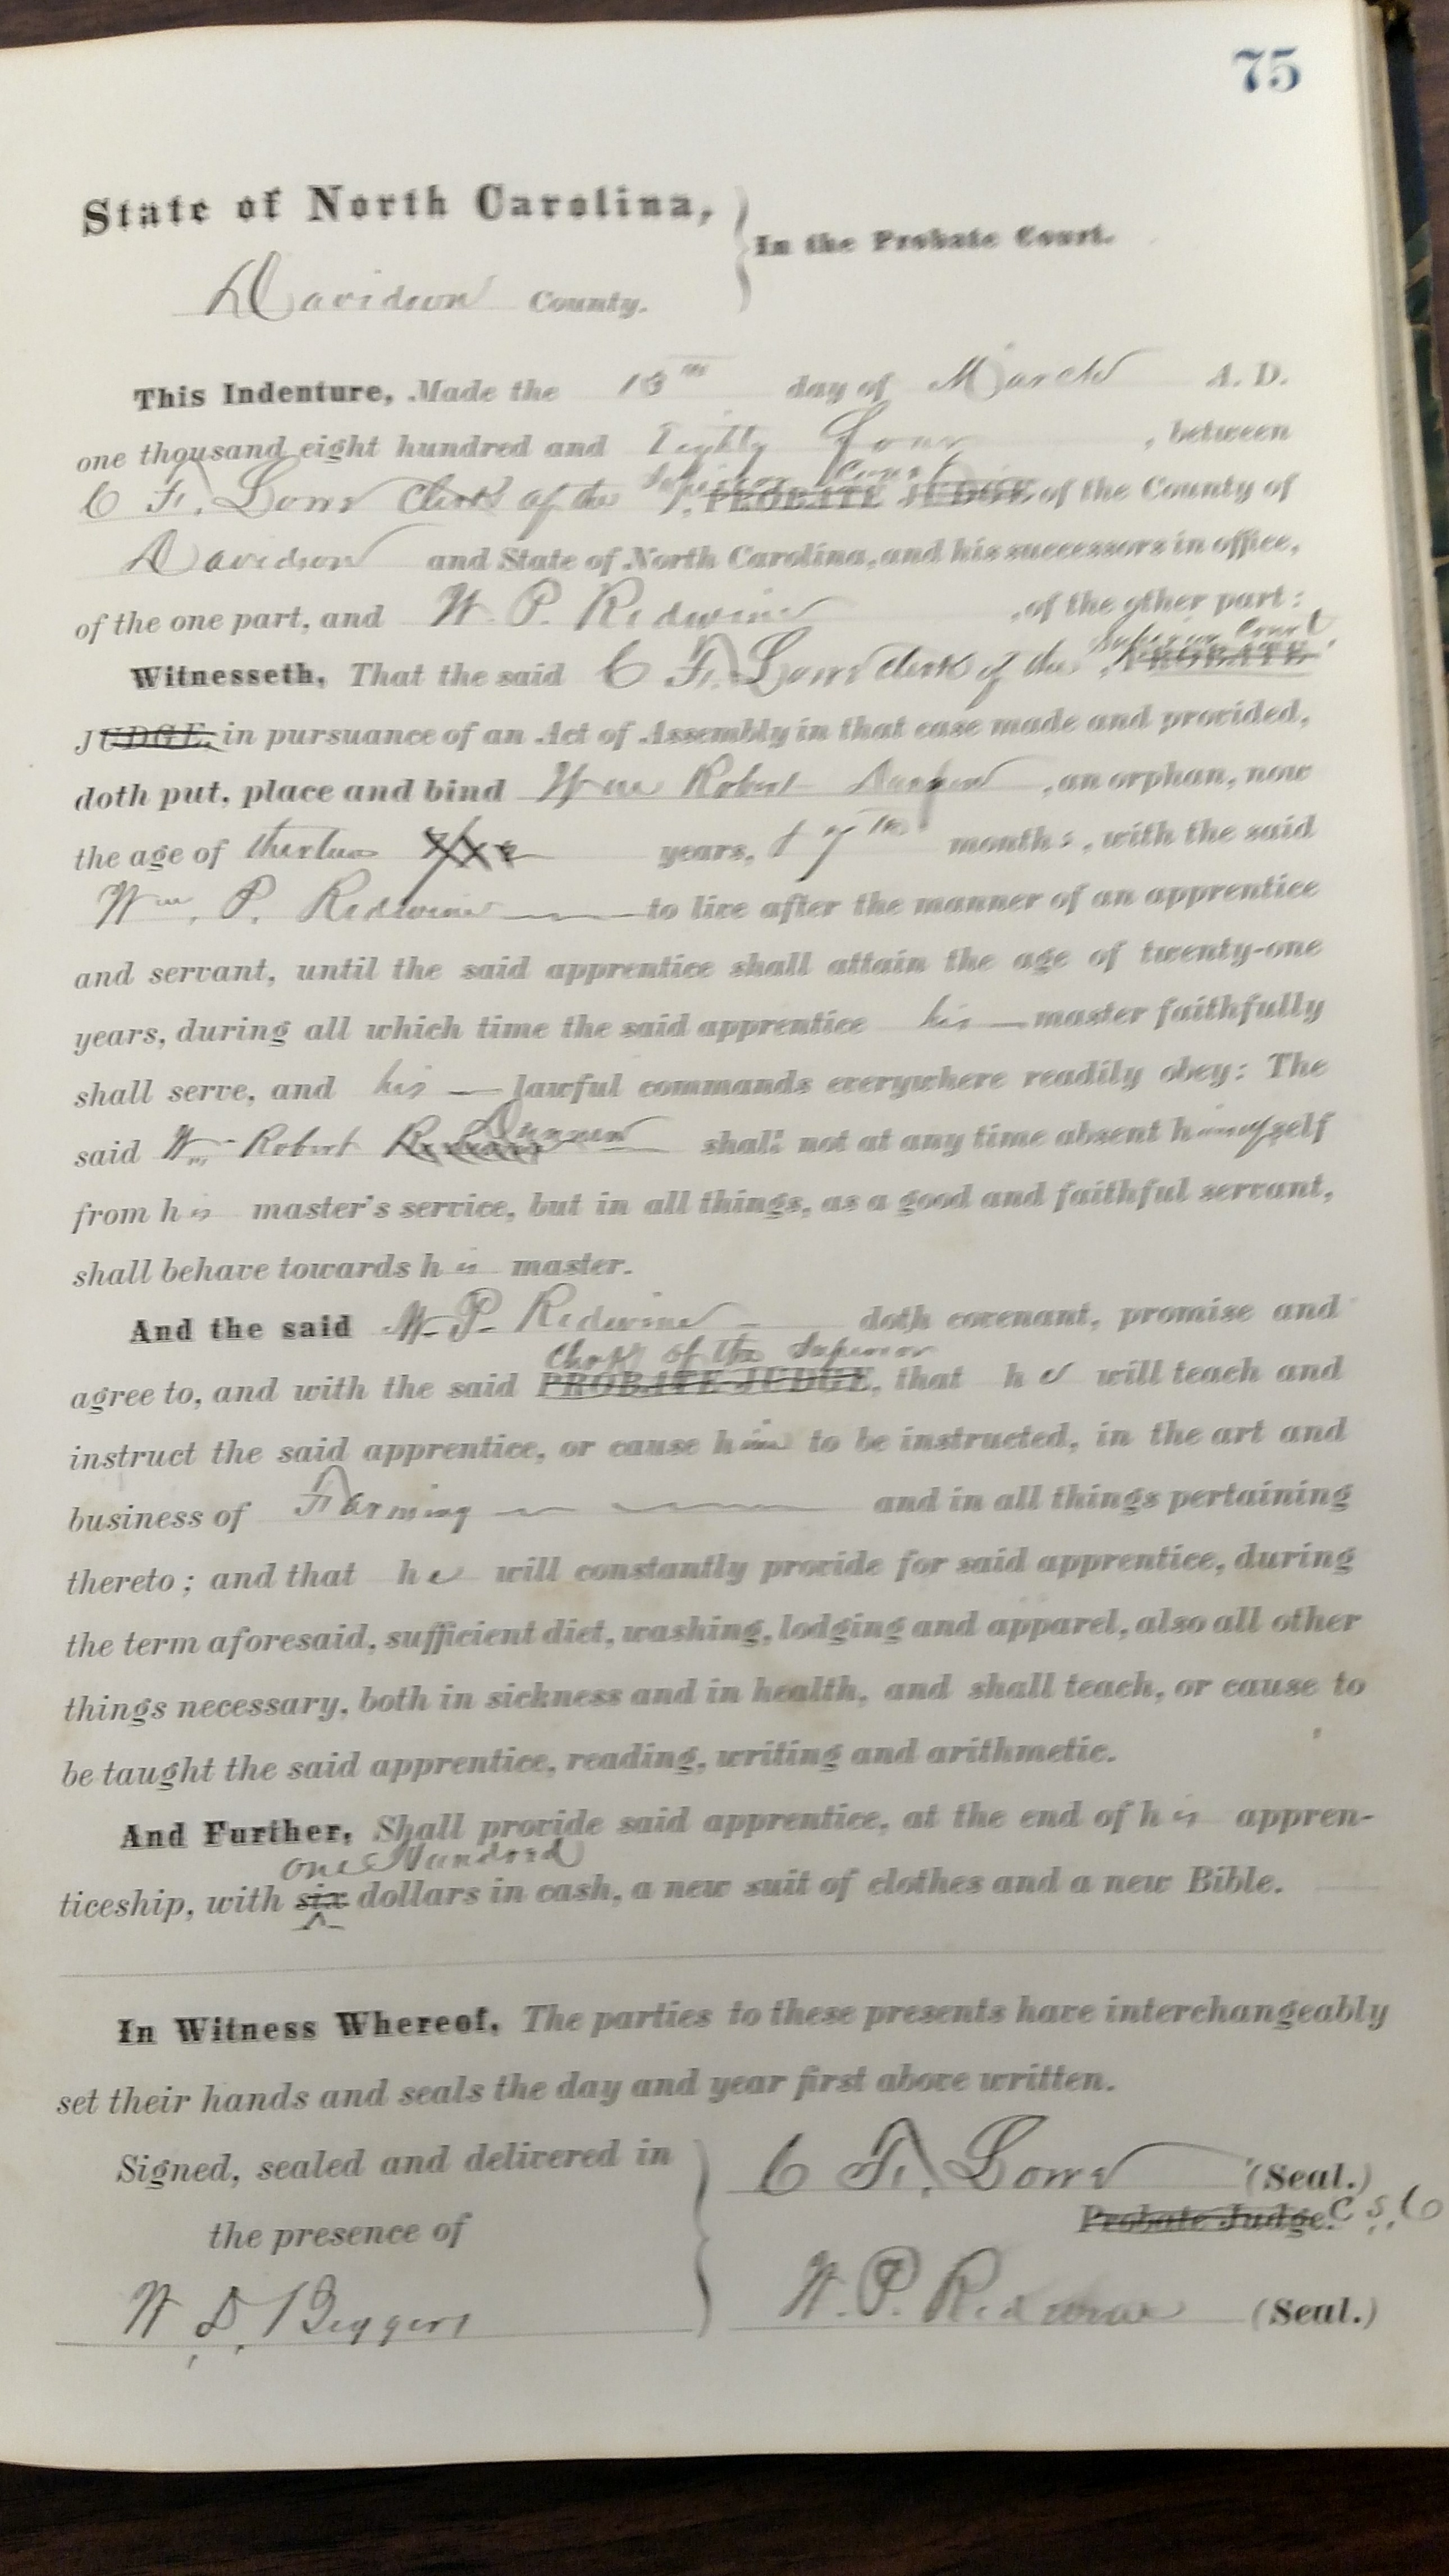 75
State of North Carolina,
In the Probate Court.
Davidson County.
This Indenture, Made the 18th day of March A. D.
one thousand eight hundred and Eighty Four , between
Superior Court
C F. Lowe Clerk of the PROBATE JUDGE of the County of
Davidson and State of North Carolina, and his successors in office,
of the one part, and W. P. Redwine , of the other part:
Superior Court
Witnesseth, That the said C F. Lowe clerk of the PROBATE
JUDGE, in pursuance of an Act of Assembly in that case made and provided,
doth put, place and bind Wm Robert , an orphan, now
the age of years, months, with the said
Wm. P. Redwine to live after the manner of an apprentice
and servant, until the said apprentice shall attain the age of twenty-one
years, during all which time the said apprentice his master faithfully
shall serve, and his lawful commands everywhere readily obey: The
said Wm Robert shall not at any time absent himself
from his master's service, but in all things, as a good and faithful servant,
shall behave towards his master.
And the said W. P. Redwine doth covenant, promise and
Clerk of the Superior
agree to, and with the said PROBATE JUDGE, that he will teach and
instruct the said apprentice, or cause him to be instructed, in the art and
business of Farming and in all things pertaining
thereto; and that he will constantly provide for said apprentice, during
the term aforesaid, sufficient diet, washing, lodging and apparel, also all other
things necessary, both in sickness and in health, and shall teach, or cause to
be taught the said apprentice, reading, writing and arithmetic.
And Further, Shall provide said apprentice, at the end of his appren-
one Hundred
ticeship, with six dollars in cash, a new suit of clothes and a new Bible.
In Witness Whereof, The parties to these presents have interchangeably
set their hands and seals the day and year first above written.
Signed, sealed and delivered in
the presence of
W. D. Biggers
C F. Lowe (Seal.)
Probate Judge. C S. C
W. P. Redwine (Seal.)